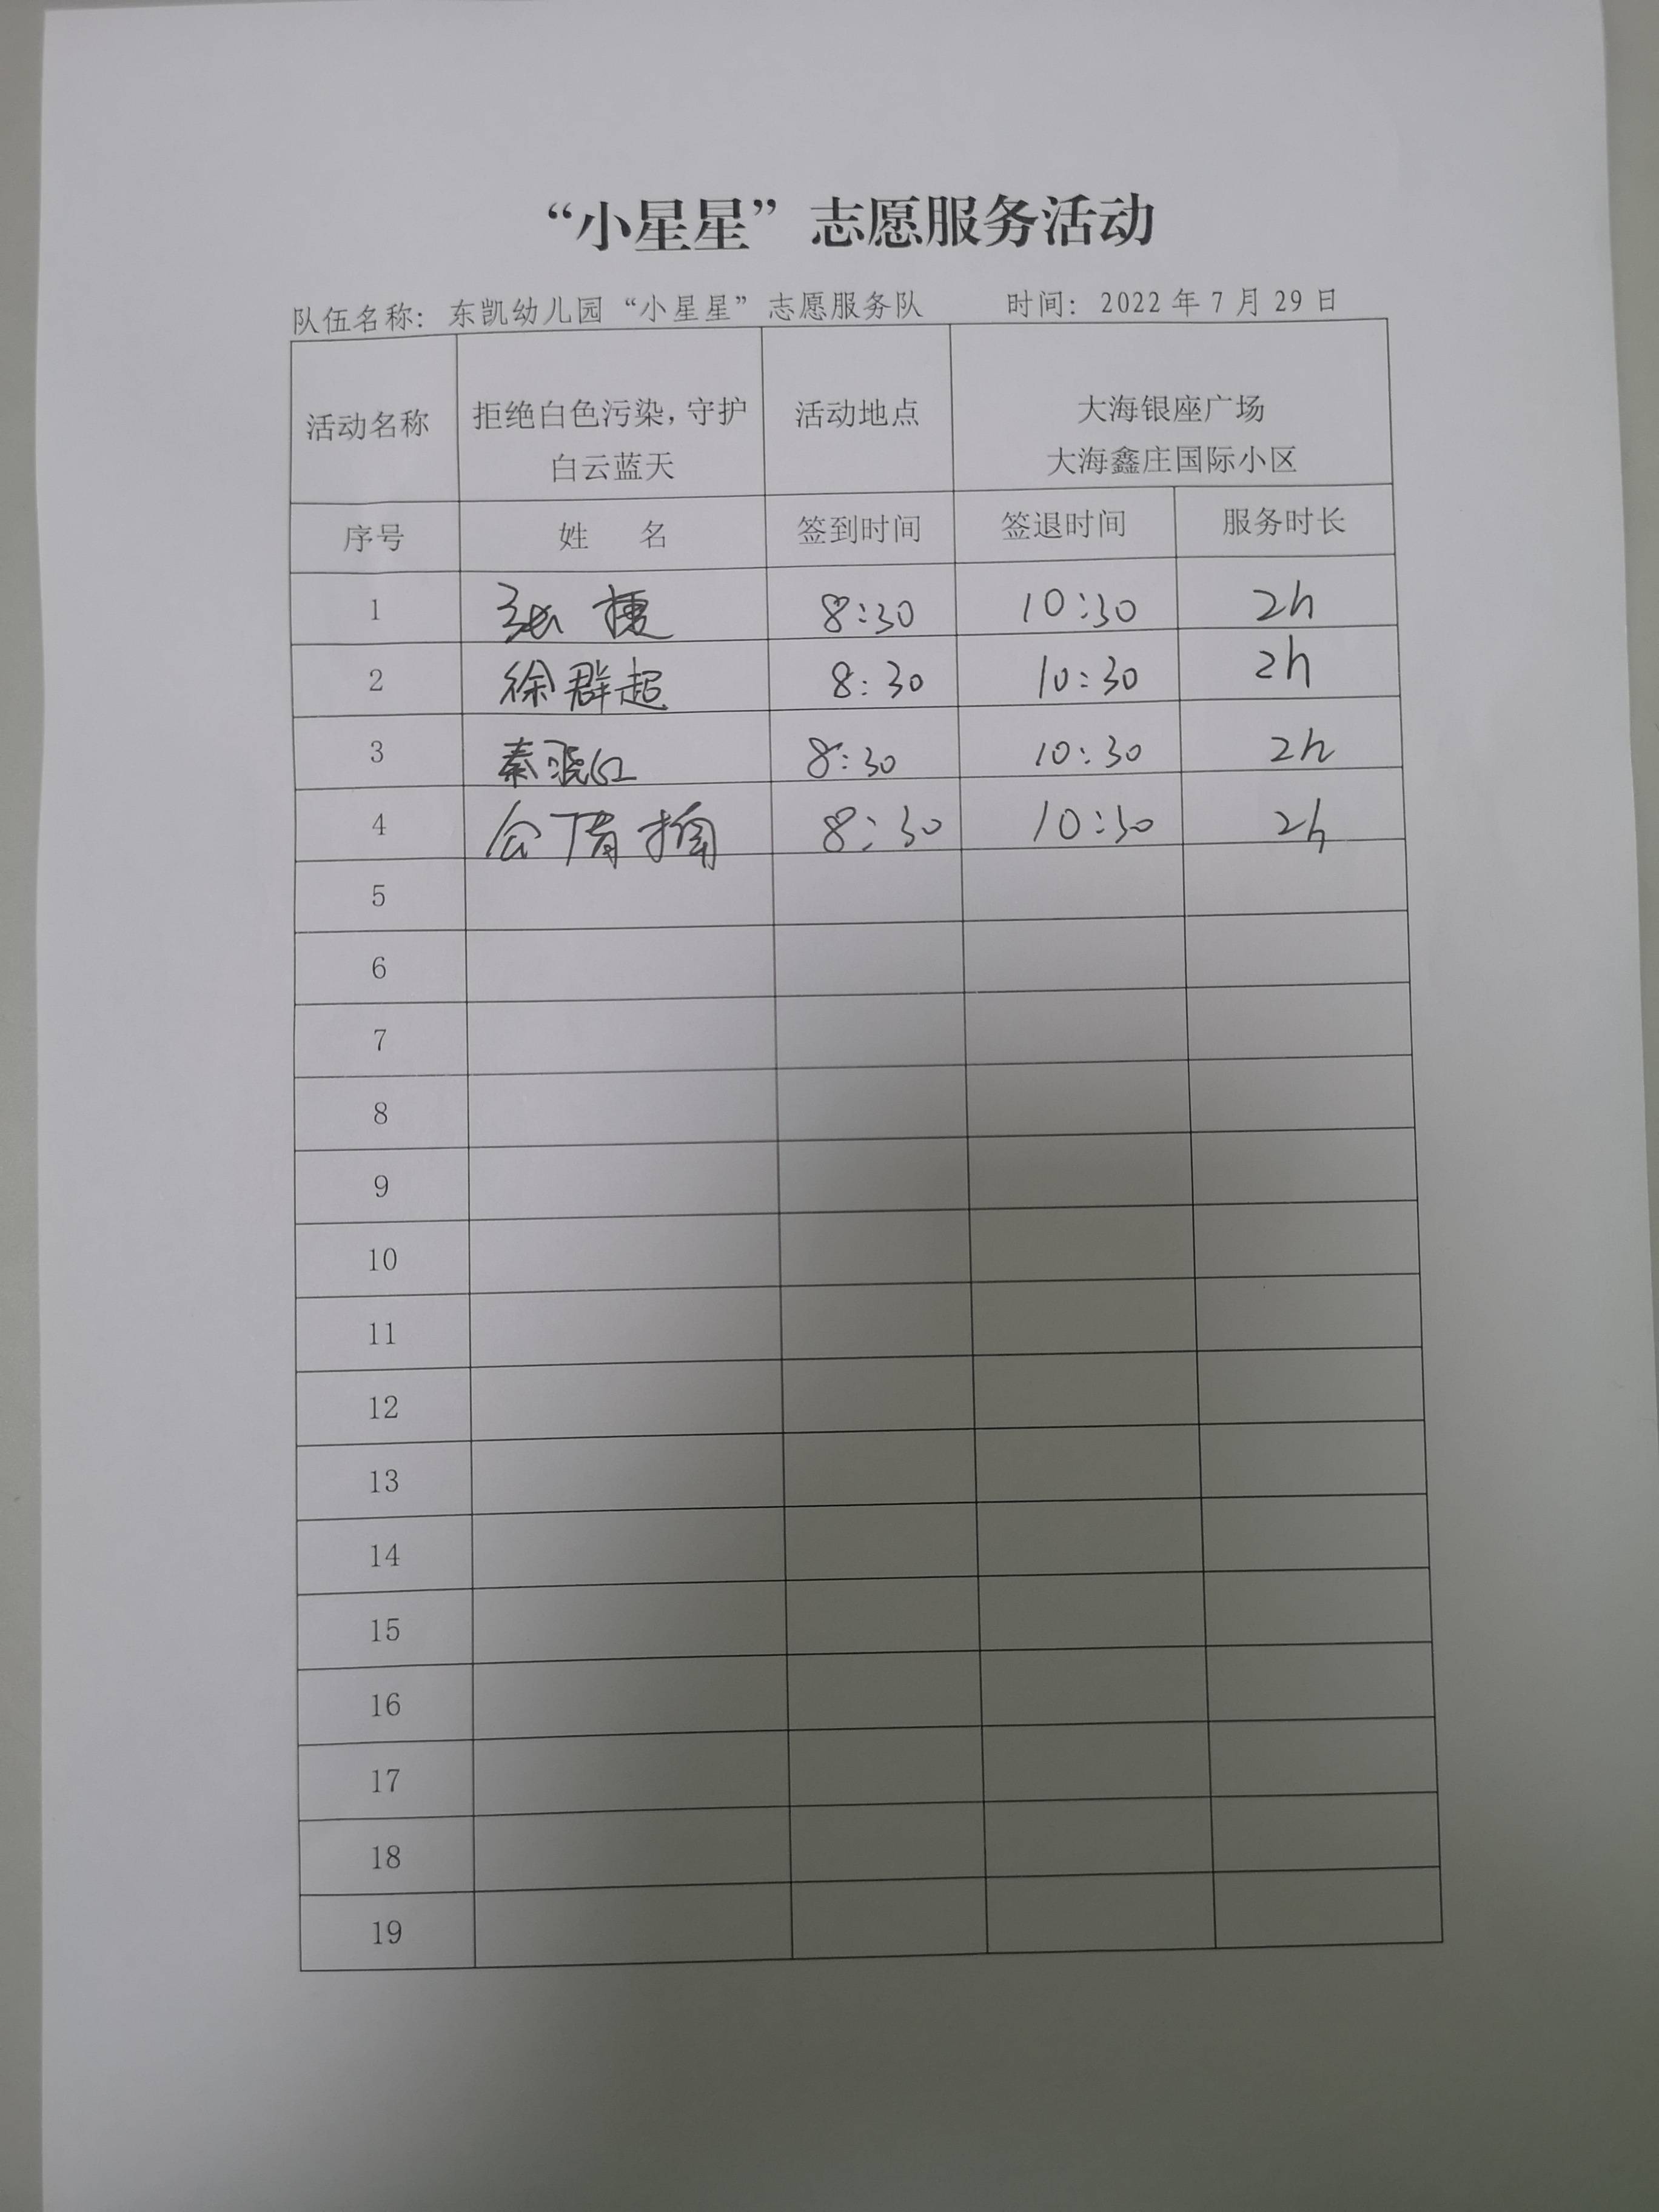 “小星星”志愿服务活动
队伍名称：东凯幼儿园“小星星”志愿服务队 时间：2022年7月29日
活动名称 拒绝白色污染，守护 活动地点 大海银座广场
白云蓝天 大海鑫庄国际小区
序号 姓 名 签到时间 签退时间 服务时长
1 张 8:30 10:30 2h
2 徐群超 8:30 10:30 2h
3 秦晓红 8:30 10:30 2h
4 8:30 10:30 2h
5
6
7
8
9
10
11
12
13
14
15
16
17
18
19